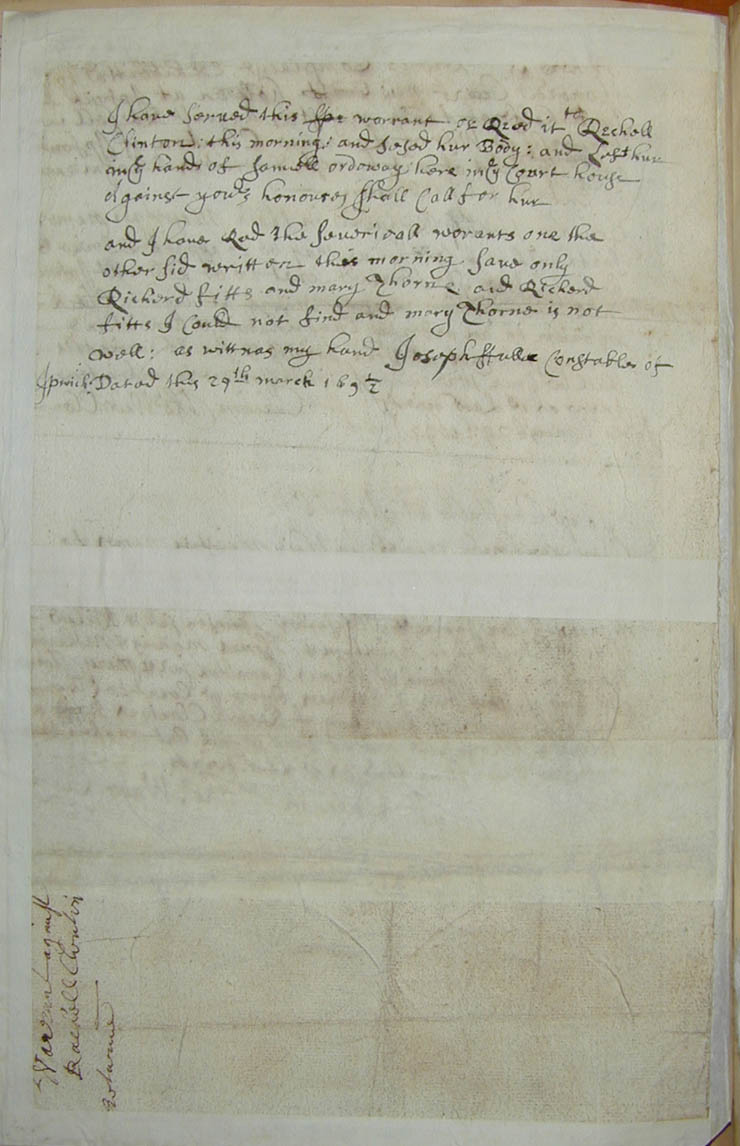 I have served this spe worrant or Reed it to Rechell
Clinton: this morning: and sesed hur Body: and Left hur
in ye hands of samuell ordoway here in ye Court house
Against youer honoures shall Call for hur
and I have Red the severieall worants one the
other sid written this morning save only
Richerd fitts and mary Thorne and Richerd
fitts I Could not find and mary Thorne is not
well: as wittnas my hand Joseph ffuller Constables of
Ipwich: Dated this 29th march 1692/1
Warrant against
Rachell Clenton